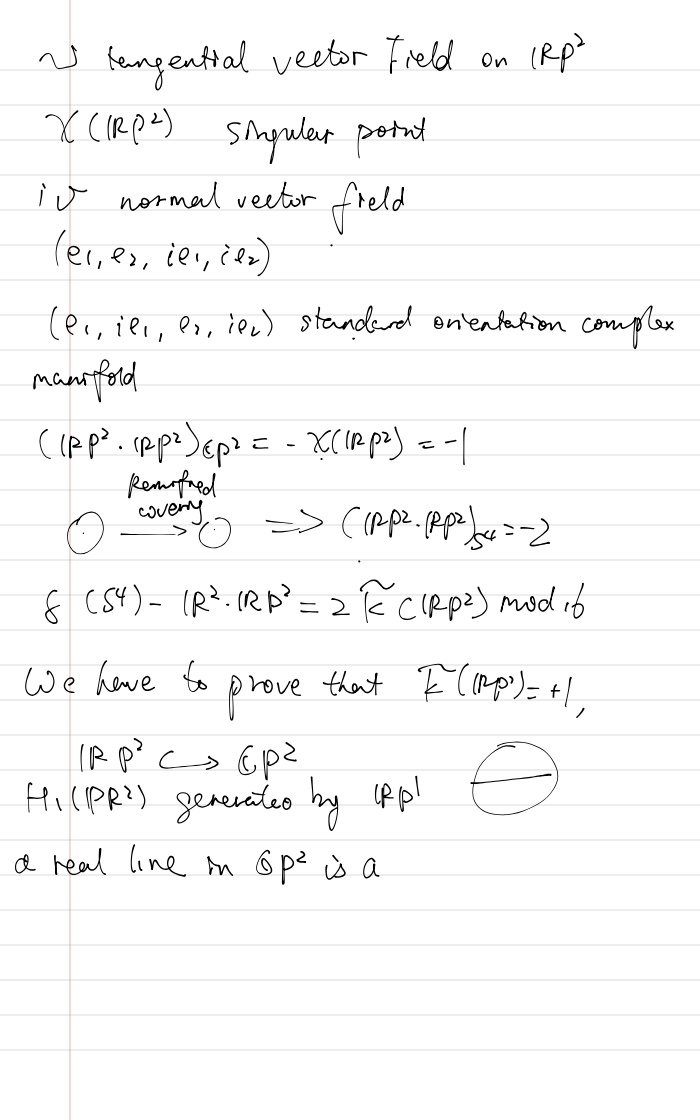 v tangential vector Field on RP²
χ(RP²) singular point
iv normal vector field
(e₁, e₂, ie₁, ie₂)
(e₁, ie₁, e₂, ie₂) standard orientation complex
manifold
(RP²·RP²)ℂP² = -χ(RP²) = -1
Ramified
covering
○ → ○ => (RP²·RP²)S4 = -2
(S⁴) - R²·RP² = 2 k̃(RP²) mod 16
We have to prove that k̃(RP²) = +1,
RP² ↪ ℂP²
H₁(PR²) generated by RP¹
a real line in ℂP² is a